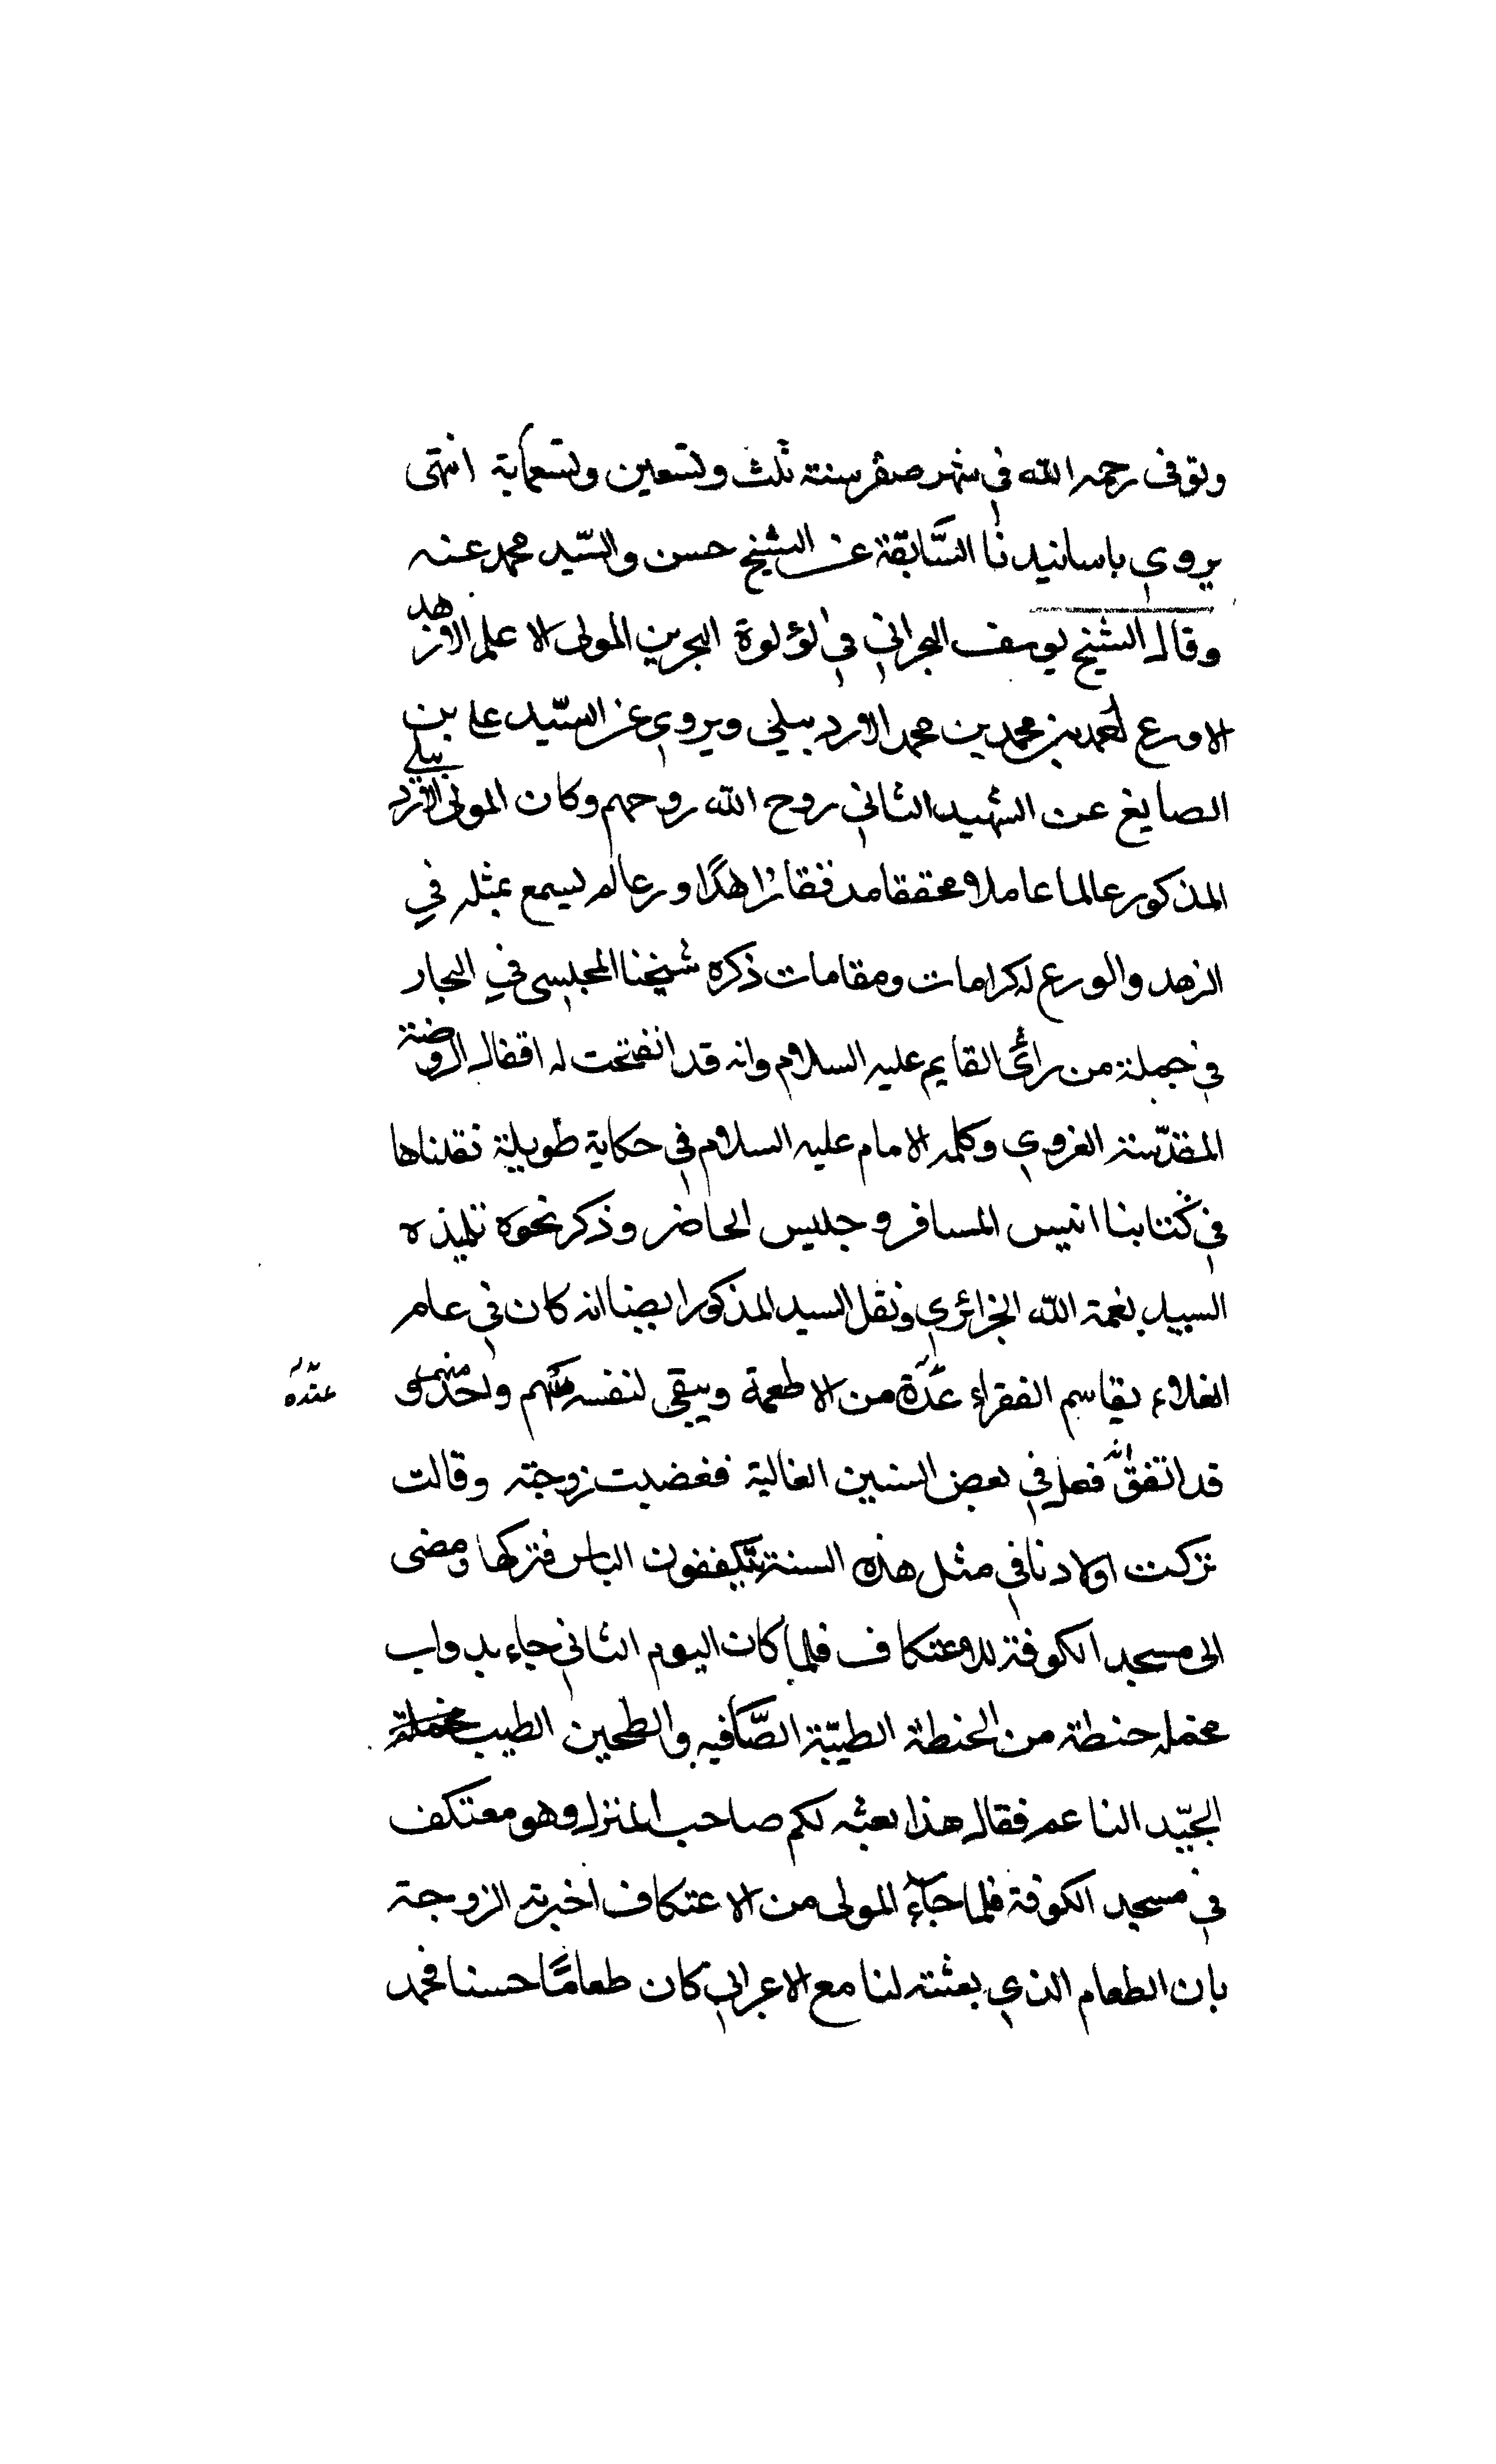 وتوفى رحمه الله في شهر صفر سنة ثلث وتسعين وتسعماية انتهى
يروي باسانيدنا السَّابقة عن الشيخ حسن والسّيد محمد عنه
وقال الشيخ يوسف البحراني في لؤلوة البحرين المولى الاعلم الازهد
الاورع احمد بن محمد الاردبيلي ويروي عن السّيد علي بن
الصايغ عن الشهيد الثاني روح الله روحهم وكان المولى الاردبيلي
المذكور عالما عاملا محققا مدققا زاهدًا ورعا لم يسمع بمثله في
الزهد والورع له كرامات ومقامات ذكره شيخنا المجلسي في البحار
في جملة من رأى القايم عليه السلام وانه قد انفتحت له اقفال الروضة
المقدّسة الغروي وكلمه الامام عليه السلام في حكاية طويلة نقلناها
في كتابنا انيس المسافر وجليس الحاضر وذكر نحوه تلميذه
السيد نعمة الله الجزائري ونقل السيد المذكور ايضا انه كان في عام
الغلاء يقاسم الفقراء عنده من الاطعمة ويبقى لنفسه سهم واحد منهم و
عنده
قد اتفق انه فعل في بعض السنين الغالية فغضبت زوجته وقالت
تركت اولادنا في مثل هذه السنة يتكففون الناس فتركها ومضى
الى مسجد الكوفة للاعتكاف فلما كان اليوم الثاني جاء بدواب
محمله حنطة من الحنطة الطيّبة الصَّافيه والطحين الطيب
الجيّد الناعم فقال هذا بعثه لكم صاحب المنزل وهو معتكف
في مسجد الكوفة فلما جآء المولى من الاعتكاف اخبرته الزوجة
بان الطعام الذي بعثته لنا مع الاعرابي كان طعامًا حسنا فحمد